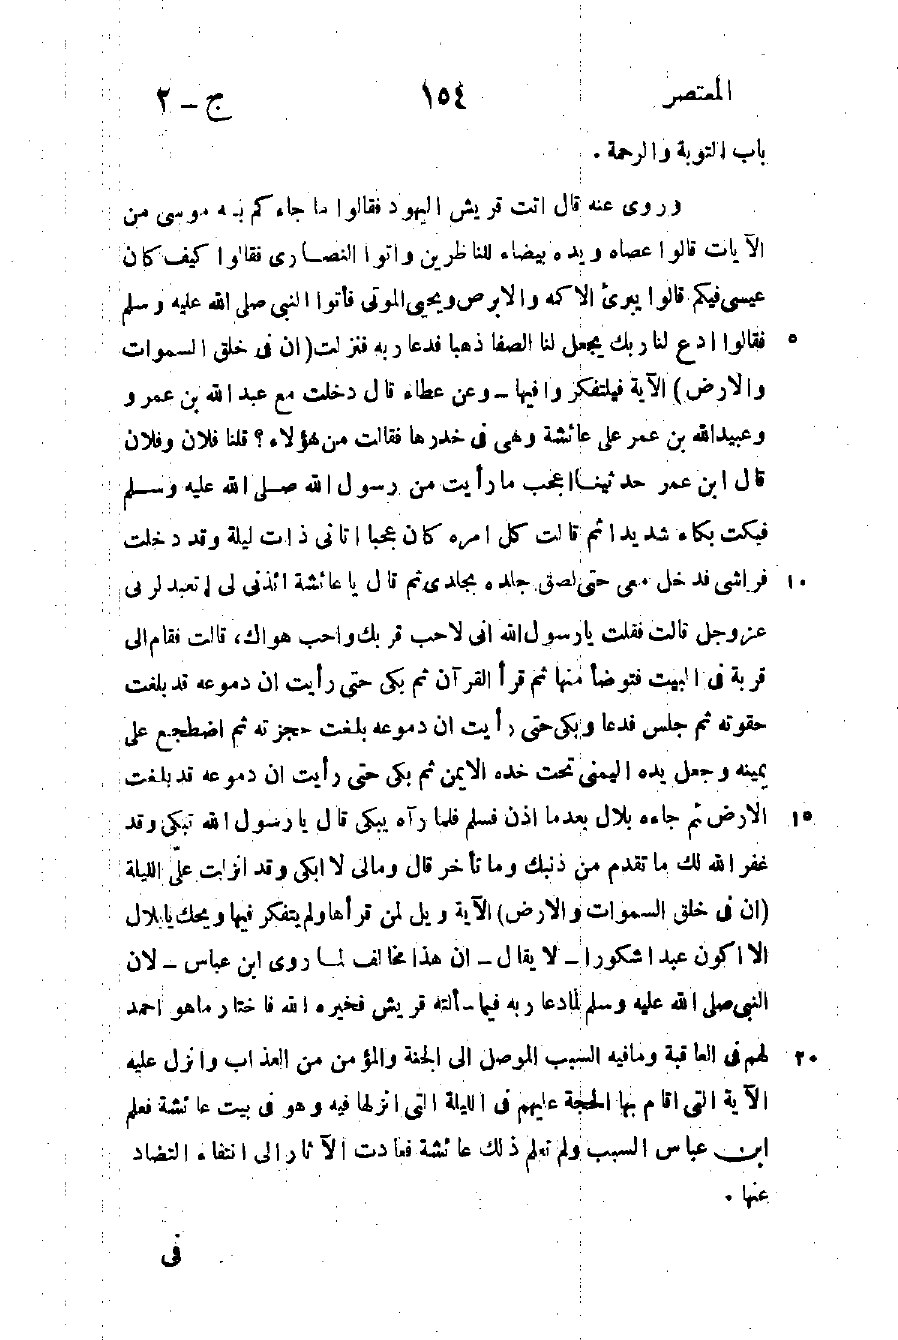 المعتصر ١٥٤ ج - ٢
باب التوبة والرحمة .
وروى عنه قال اتت قريش اليهود فقالوا ما جاءكم به موسى من
الآيات قالوا عصاه ويده بيضاء للناظرين واتوا النصارى فقالوا كيف كان
عيسى فيكم قالوا يبرئ الاكمه والابرص ويحيى الموتى فأتوا النبى صلى الله عليه وسلم
فقالوا ادع لنا ربك يجعل لنا الصفا ذهبا فدعا ربه فنزلت (ان فى خلق السموات ٥
والارض) الآية فيلتفكروا فيها - وعن عطاء قال دخلت مع عبد الله بن عمر و
وعبيدالله بن عمر على عائشة وهى فى خدرها فقالت من هؤلاء؟ قلنا فلان وفلان
قال ابن عمر حدثينا اعجب ما رأيت من رسول الله صلى الله عليه وسلم
فبكت بكاء شديدا ثم قالت كل امره كان عجبا اتانى ذات ليلة وقد دخلت
فراشى فدخل معى حتى لصق جلده بجلدى ثم قال يا عائشة ائذنى لى اتعبد لربى ١٠
عزوجل قالت فقلت يارسول الله انى لاحب قربك واحب هواك، قالت فقام الى
قربة فى البيت فتوضأ منها ثم قرأ القرآن ثم بكى حتى رأيت ان دموعه قد بلغت
حقوته ثم جلس فدعا وبكى حتى رأيت ان دموعه بلغت حجزته ثم اضطجع على
يمينه وجعل يده اليمنى تحت خده الايمن ثم بكى حتى رأيت ان دموعه قد بلغت
الارض ثم جاءه بلال بعدما اذن فسلم فلما رآه يبكى قال يا رسول الله تبكى وقد ١٥
غفر الله لك ما تقدم من ذنبك وما تأخر قال ومالى لا ابكى وقد انزلت علىّ الليلة
(ان فى خلق السموات والارض) الآية ويل لمن قرأها ولم يتفكر فيها ويحك يا بلال
الا اكون عبدا شكورا - لا يقال - ان هذا مخالف لما روى ابن عباس - لان
النبى صلى الله عليه وسلم لما دعا ربه فيما سألته قريش فخيره الله فاختار ما هو احمد
لهم فى العاقبة وما فيه السبب الموصل الى الجنة والمؤمن من العذاب وانزل عليه ٢٠
الآية التى اقام بها الحجة عليهم فى الليلة التى انزلها فيه وهو فى بيت عائشة فعلم
ابن عباس السبب ولم تعلم ذلك عائشة فعادت الآثار الى انتفاء التضاد
عنها .
فى